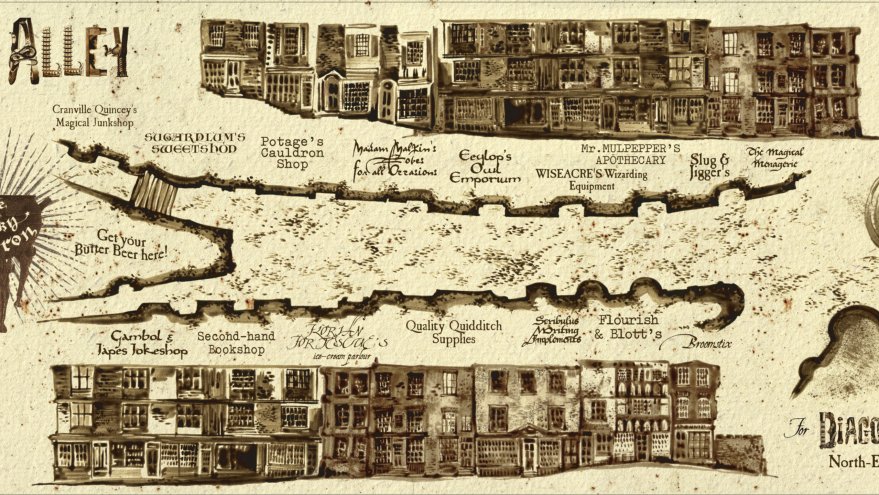 ALLEY
Cranville Quincey's
Magical Junkshop
SUGARPLUM'S
SWEETSHOP
Potage's
Cauldron
Shop
Madam Malkin's
Robes
for All Occasions
Eeylop's
Owl
Emporium
Mr. MULPEPPER'S
APOTHECARY
WISEACRE'S Wizarding
Equipment
Slug &
Jigger's
The Magical
Menagerie
Get your
Butter Beer here!
Gambol &
Japes Jokeshop
Second-hand
Bookshop
FLORIAN
FORTESCUE'S
ice-cream parlour
Quality Quidditch
Supplies
Scribulus
Writing
Implements
Flourish
& Blott's
Broomstix
For DIAGO
North-E